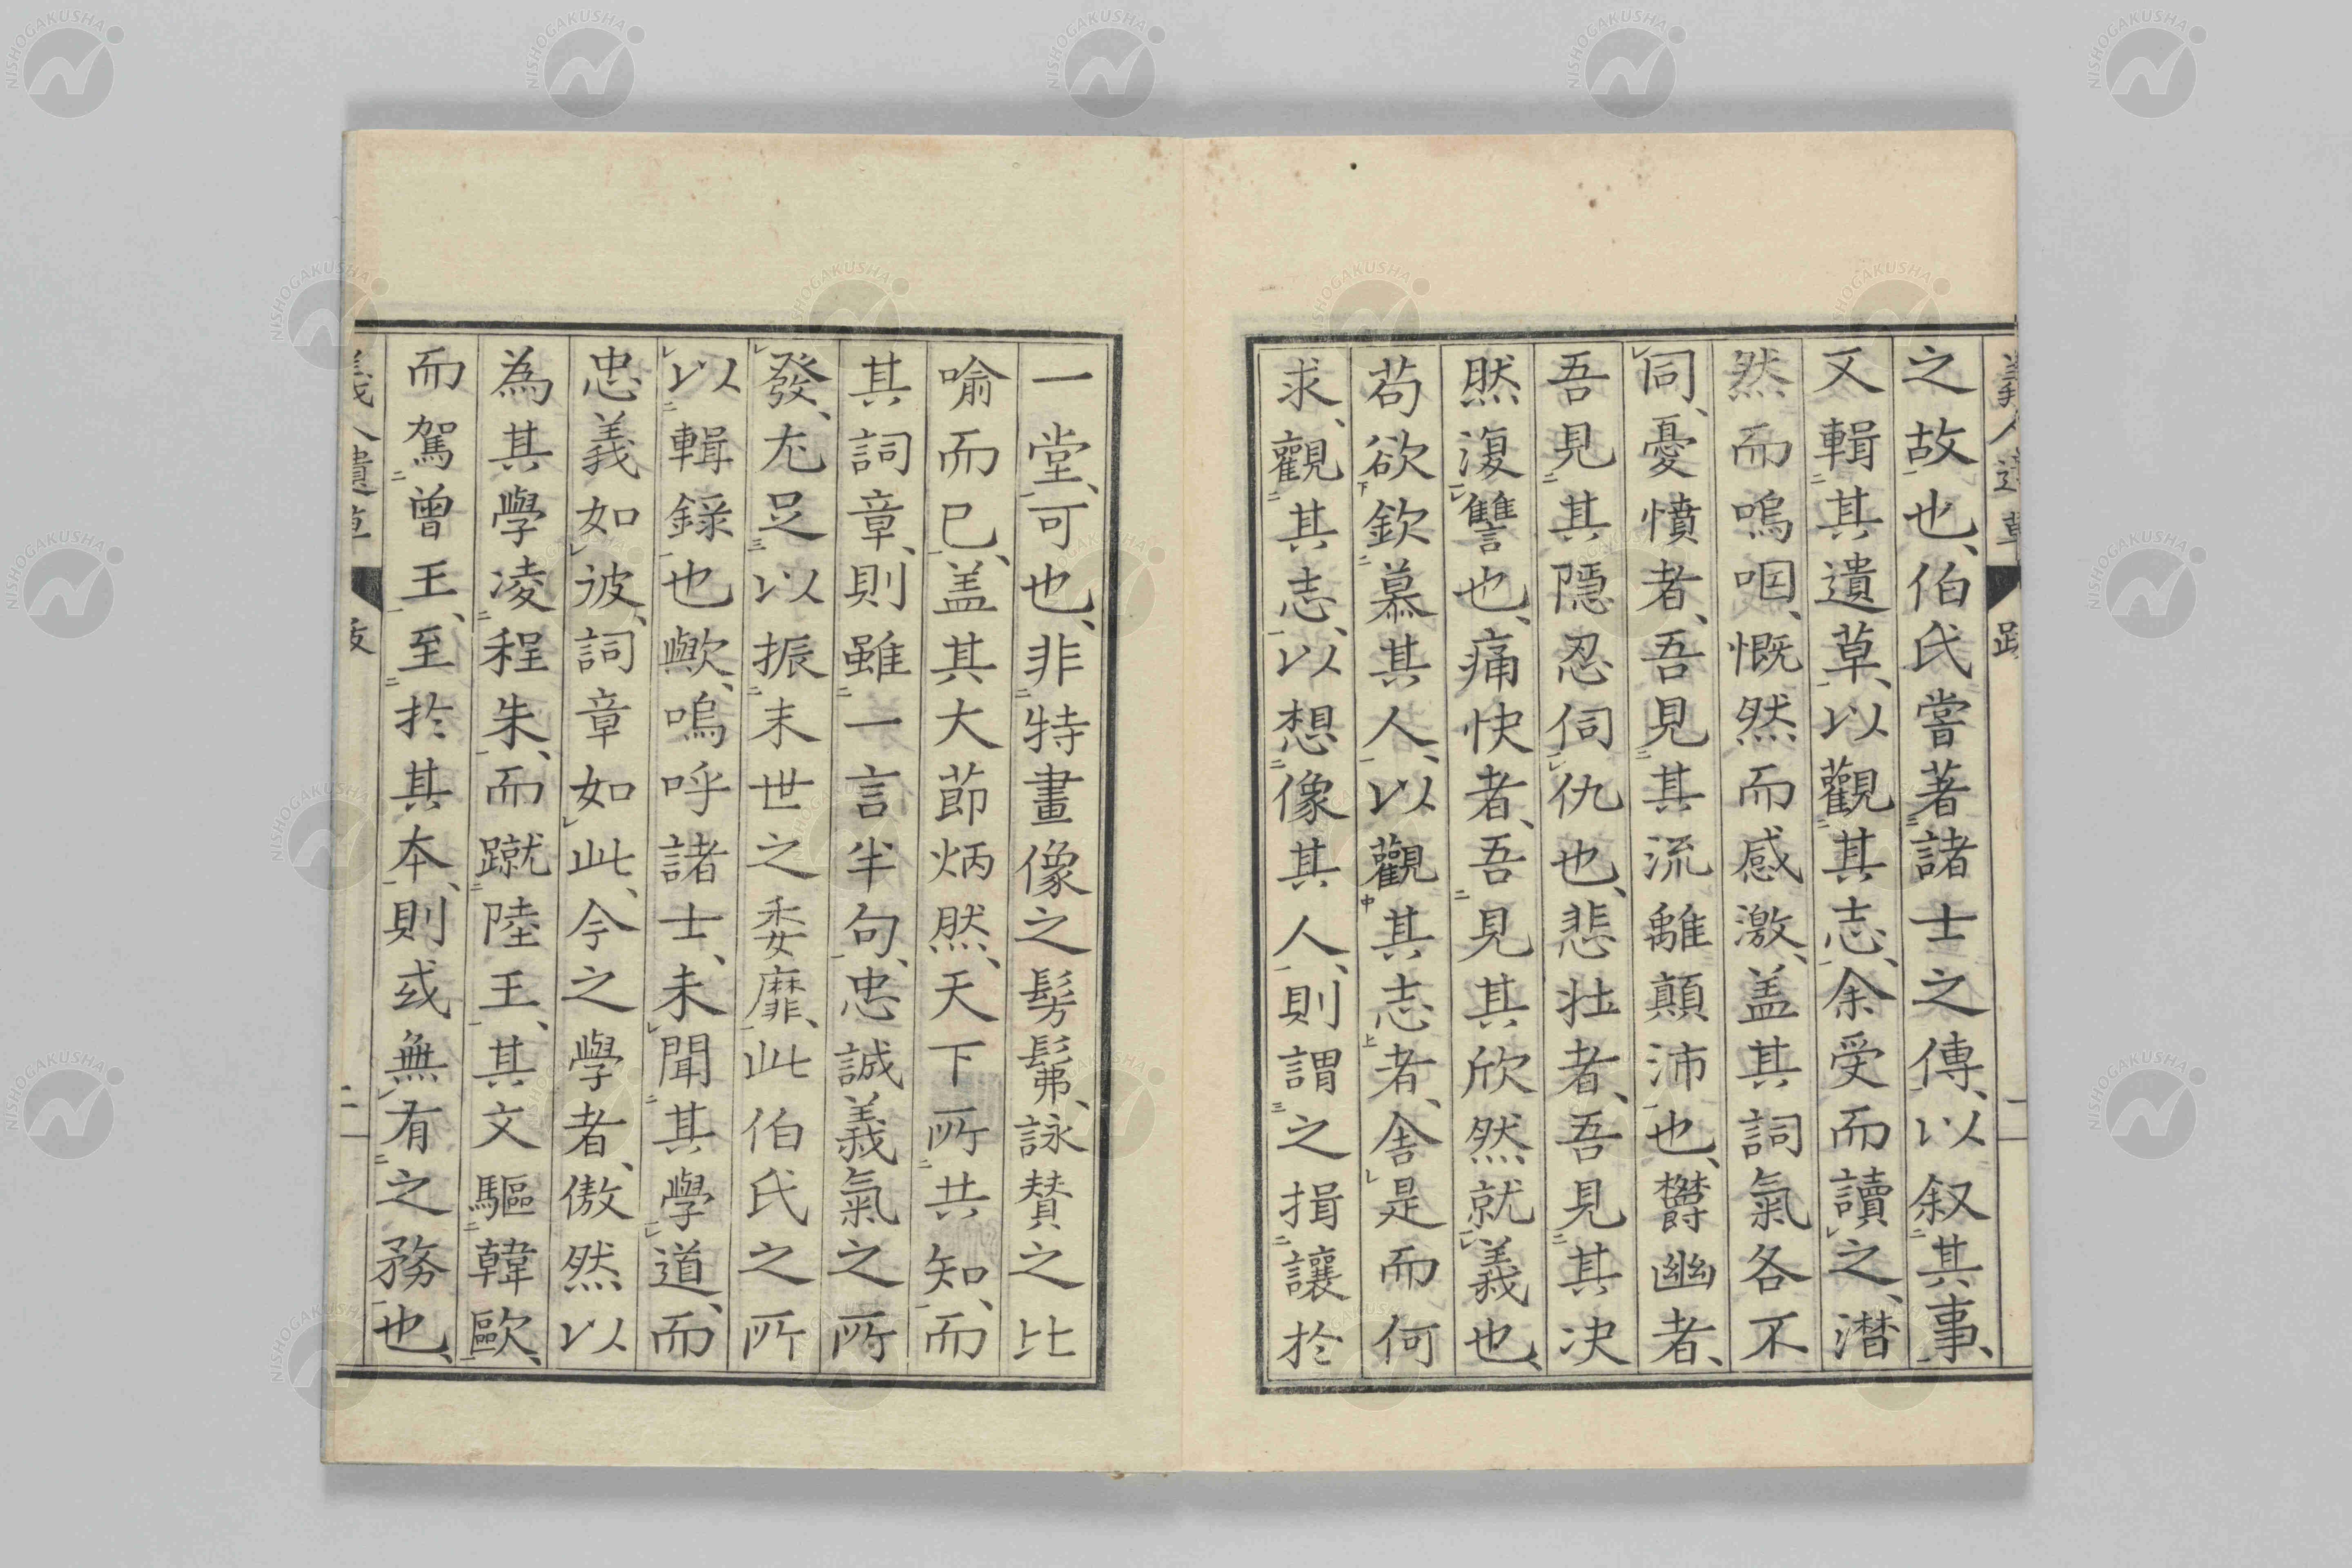 之故也、伯氏嘗著諸士之傳、以叙其事、
又輯其遺草、以觀其志、余受而讀之、潜
然而嗚咽、慨然而感激、盖其詞氣各不
同、憂憤者、吾見其流離顛沛也、欝幽者、
吾見其隱忍伺仇也、悲壮者、吾見其决
然復讐也、痛快者、吾見其欣然就義也、
苟欲欽慕其人、以觀其志者、舍是而何
求、觀其志、以想像其人、則謂之揖讓於
一堂、可也、非特畫像之髣髴、詠賛之比
喻而已、盖其大莭炳然、天下所共知、而
其詞章、則雖一言半句、忠誠義氣之所
發、尤足以振末世之委靡、此伯氏之所
以輯録也歟、嗚呼諸士、未聞其學道、而
忠義如彼、詞章如此、今之學者、傲然以
為其學凌程朱、而蹴陸王、其文驅韓歐、
而駕曾王、至於其本、則或無有之務也、
義人遺草 跋 二
NISHOGAKUSHA